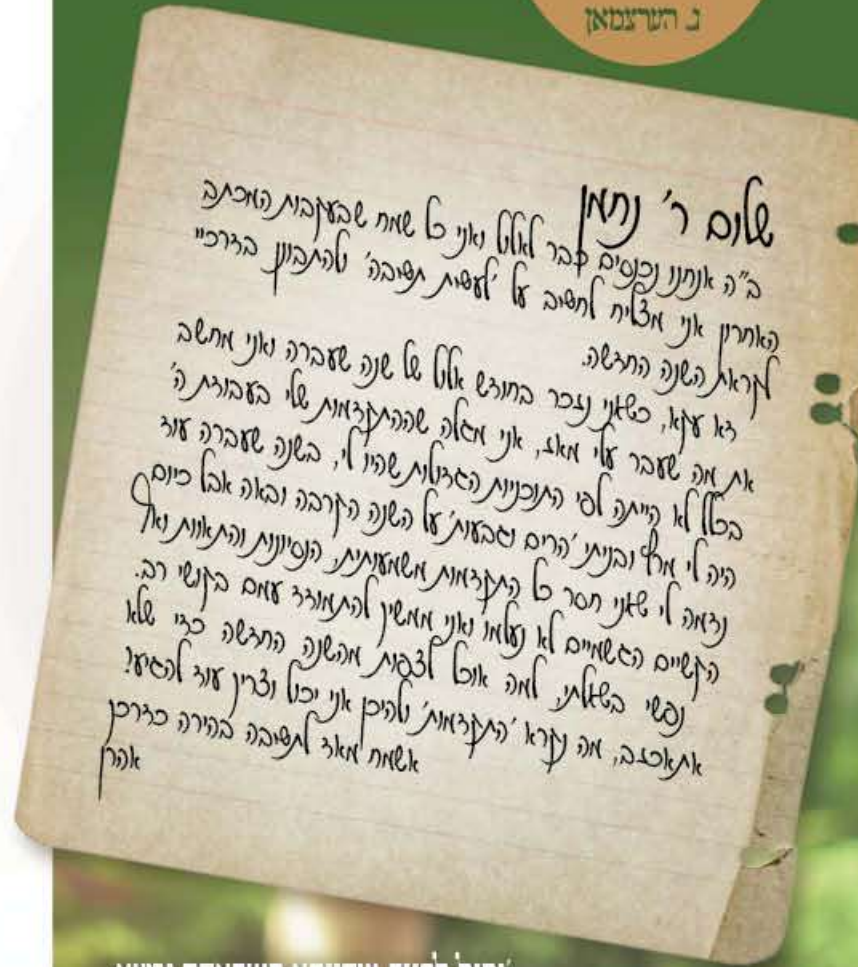 נ. הערצמאן
שלום ר' נחמן
ב"ה אנחנו נכנסים כבר לאלול ואני כל שמח שבעקבות המכתב
האחרון אני מצליח לחשוב על 'לעשות תשובה' ולהתבונן בדרכיי
לקראת השנה החדשה.
דא עקא, כשאני נזכר בחודש אלול של שנה שעברה ואני מחשב
את מה שעבר עלי מאז, אני מגלה שההתקדמות שלי בעבודת ה'
בכלל לא הייתה לפי התוכניות הגדולות שהיו לי, בשנה שעברה עוד
היה לי מרץ ובניתי 'הרים וגבעות' על השנה הקרבה ובאה אבל כיום
נדמה לי שאני חסר כל התקדמות משמעותית, הנסיונות והתאוות ואף
הקשיים הגשמיים לא נעלמו ואני ממשיך להתמודד עמם בקושי רב.
נפשי בשאלתי, למה אוכל לצפות מהשנה החדשה כדי שלא
אתאכזב, מה נקרא 'התקדמות' ולהיכן אני יכול וצריך עוד להגיע?
אשמח מאד לתשובה בהירה כדרכך
אהרן